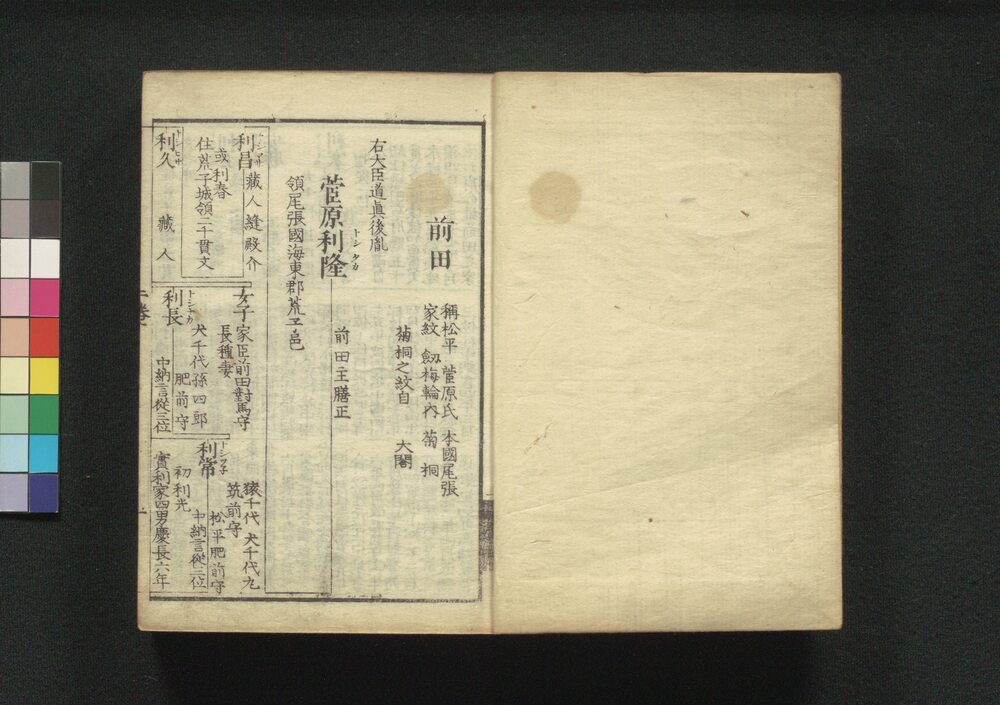 前田
稱松平 菅原氏 本國尾張
家紋 劔梅輪內 菊 桐
菊桐之紋自 大閤
右大臣道眞後胤
菅原利隆
トシ タカ
前田主膳正
領尾張國海東郡荒子邑
利昌
藏人縫殿介
或利春
住荒子城領二千貫文
利久
トシヒサ
藏人
女子
家臣前田對馬守
長種妻
利長
トシナカ
犬千代孫四郎
肥前守
中納言從三位
利常
トシツ子
猿千代 犬千代九
筑前守
松平肥前守
中納言從三位
初利光
實利家四男慶長六年